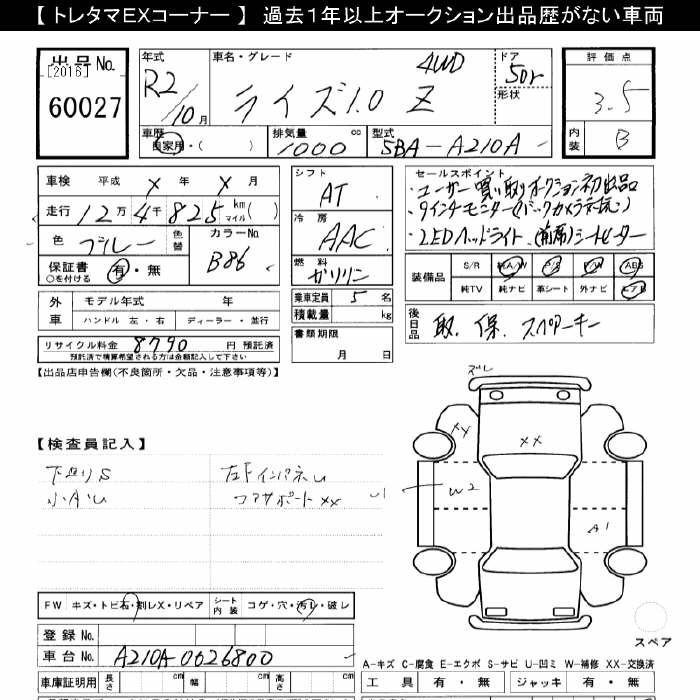 【 トレタマEXコーナー 】 過去1年以上オークション出品歴がない車両
出品No.
[2016]
60027
年式 R2/10月
車名・グレード ライズ1.0 Z 4WD
ドア 5Dr
形状
評価点 3.5
内装 B
車歴 自家用・( )
排気量 1000 cc
型式 5BA-A210A
車検 平成 X年 X月
走行 12万4千825 km マイル( )
色 ブルー 色替
カラーNo. B86
保証書 ○を付ける 有・無
シフト AT
冷房 AAC
燃料 ガソリン
乗車定員 5名
積載量 kg
書類期限 月 日
セールスポイント
・ユーザー買い取りオークション初出品
・9インチモニター(バックカメラ対応)
・LEDヘッドライト (前席)シートヒーター
装備品 S/R 純A/W P/S P/W ABS
純TV 純ナビ 革シート 外ナビ エアB
後日品 取、保、スペアーキー
外車 モデル年式 年
ハンドル 左・右 ディーラー・並行
リサイクル料金 8790 円 預託済
預託済で積算希望される方は金額記入して下さい
【出品店申告欄(不良箇所・欠品・注意事項等)】
【検査員記入】
下廻りS
小Aし
左下インパネし
コアサポートXX
ズレ
XY
XX
W2
A1
スペア
FW キズ・トビ石・割レX・リペア
シート内装 コゲ・穴・汚レ・破レ
登録No.
車台No. A210A-0026800
車庫証明用 長さ cm 幅 cm 高さ cm
A-キズ C-腐食 E-エクボ S-サビ U-凹ミ W-補修 XX-交換済
工具 有・無 ジャッキ 有・無